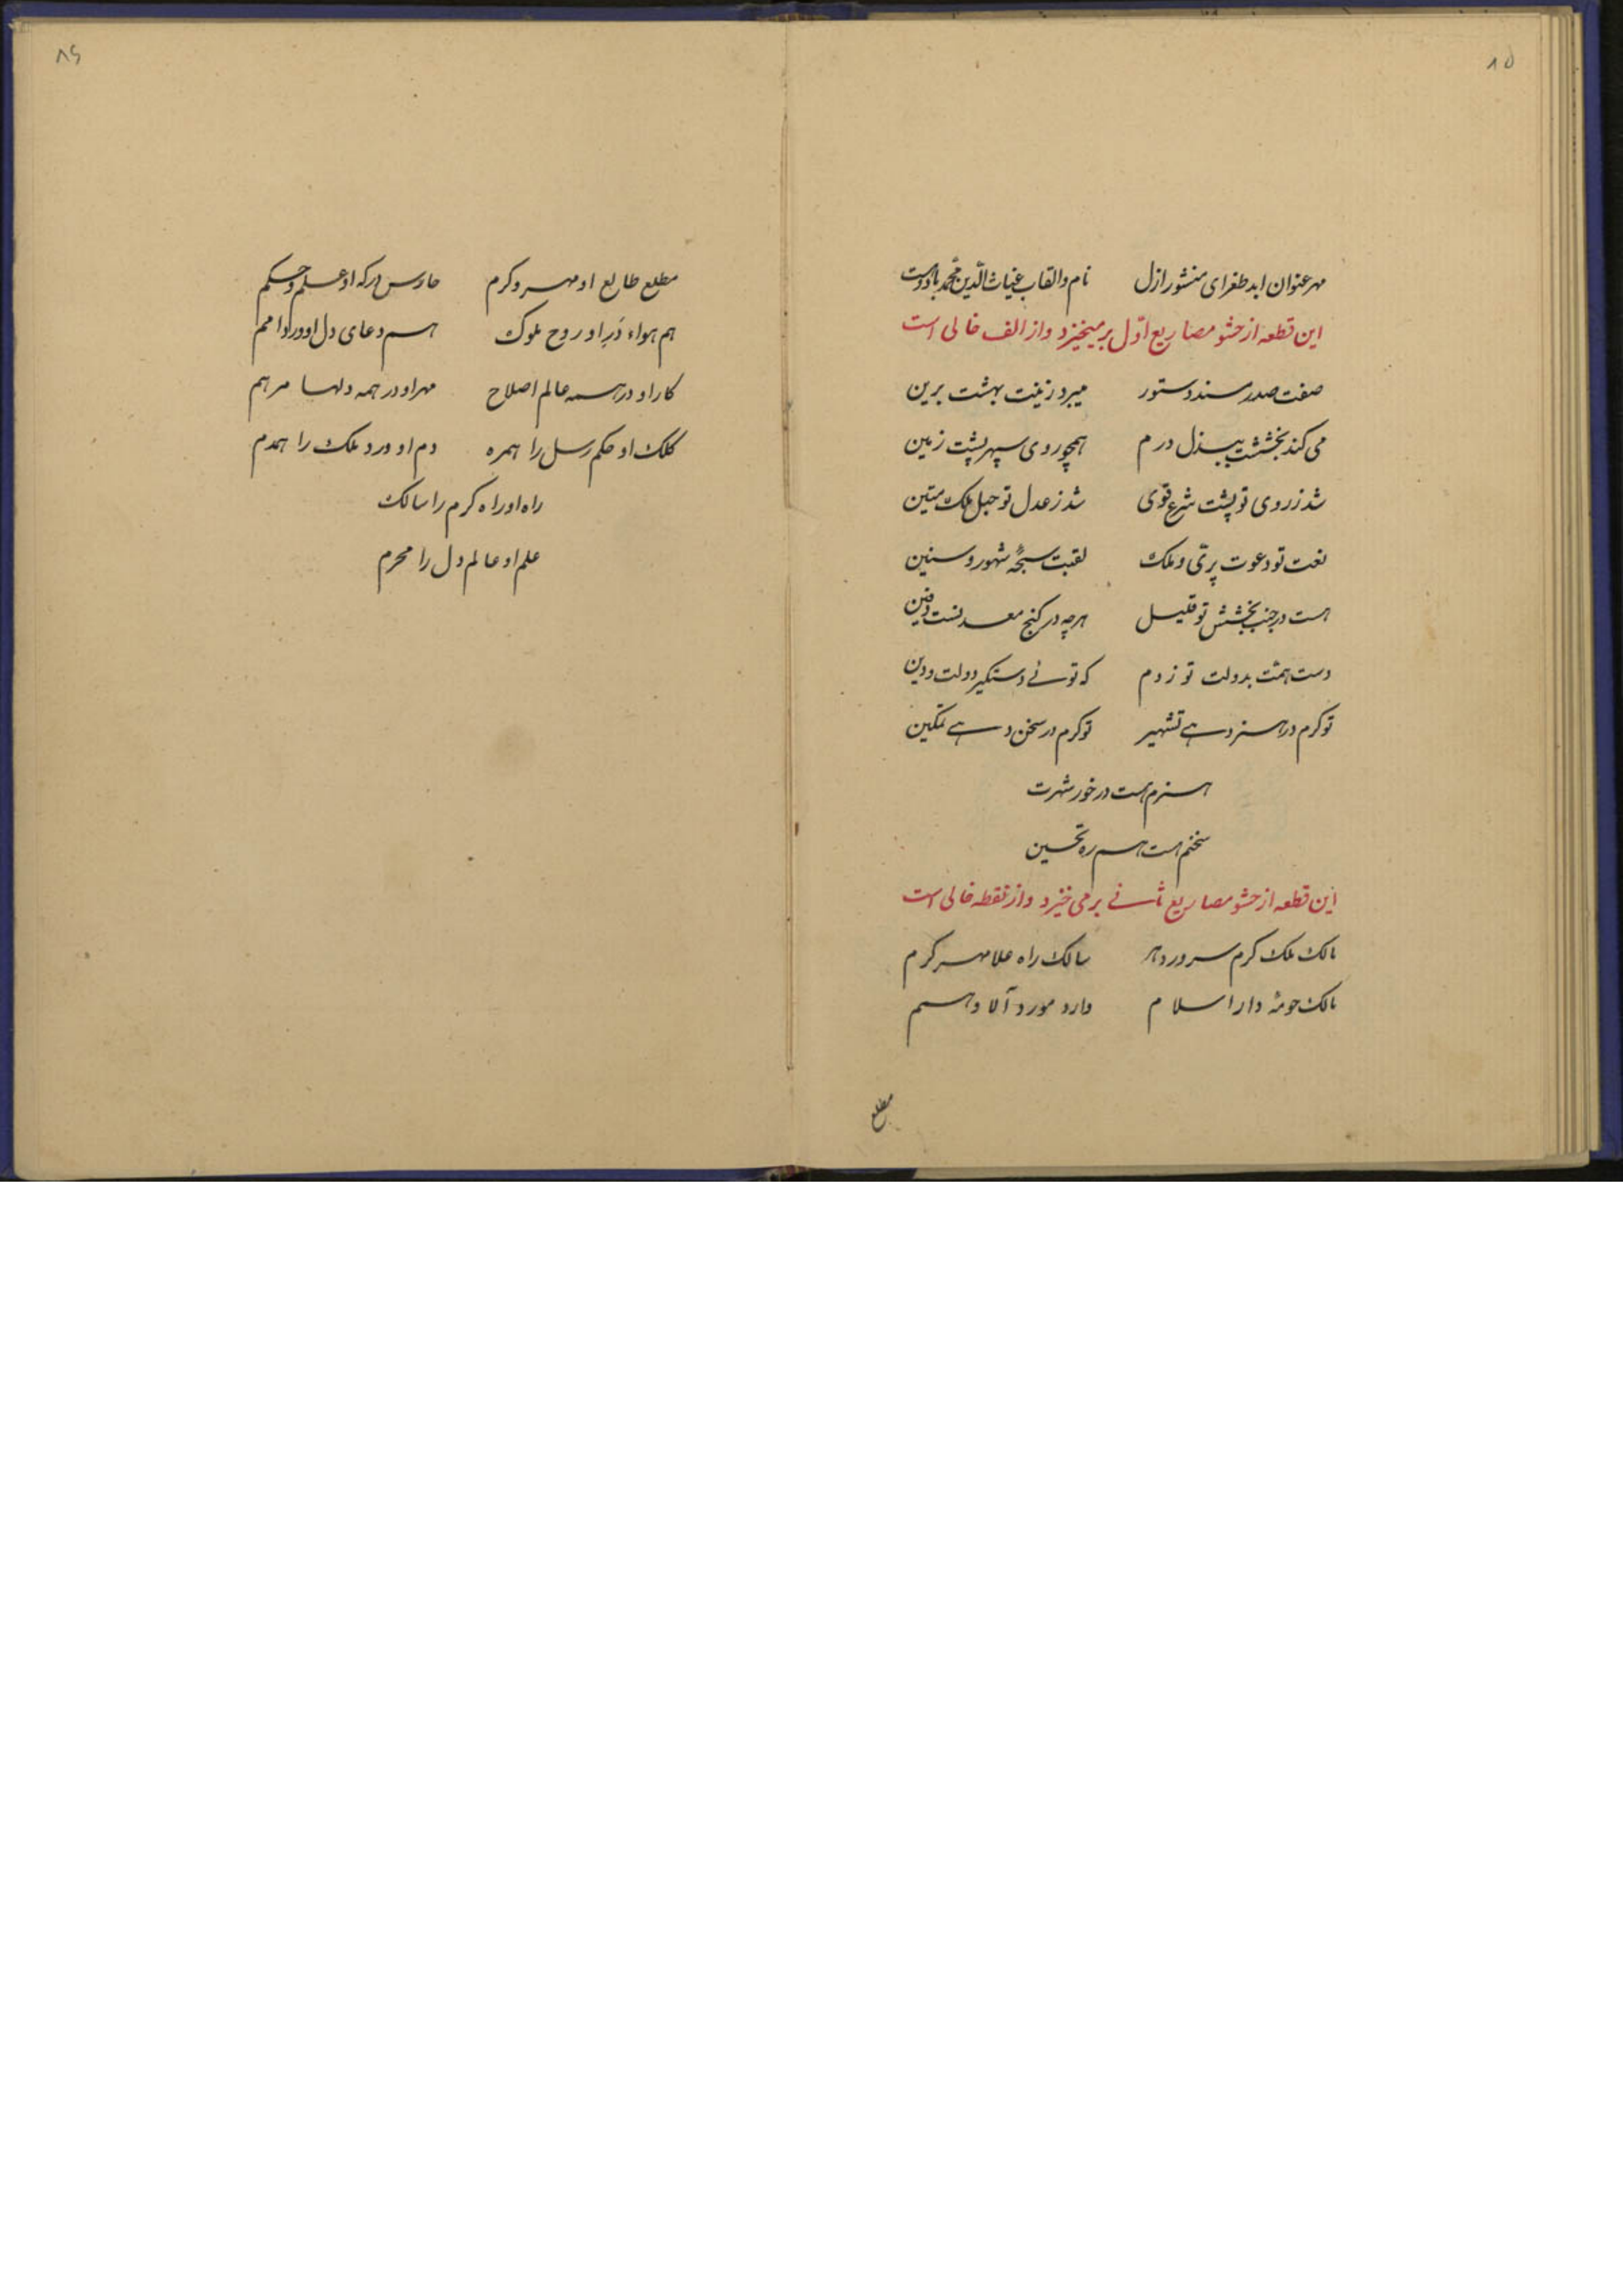 ۸۵
مهر عنوان ابد طغرای منشور ازل نام والقاب غیاث الدین محمد یاد و دست
این قطعه از حشو مصاریع اول برمیخیزد و از الف خالی است
صفت صدر مسند دستور میبرد زینت بهشت برین
می کند بخششت ببذل درم همچو روی سپهر پشت زمین
شد ز روی تو پشت شرع قوی شد ز عدل تو حبل ملک متین
نعت تو دعوت پری و ملک لقبت سبحهٔ شهور و سنین
هست در جنب بخشش تو قلیل هرچه در کنج معدنست دفین
دست همت بدولت تو زدم که توئی دستگیر دولت و دین
تو کرم در هنر دهی تشهیر تو کرم در سخن دهی تمکین
هنرم هست در خور شهرت
سخنم هست هم ره تحسین
این قطعه از حشو مصاریع ثانی برمی خیزد و از نقطه خالی است
مالک ملک کرم سرور دهر سالک راه علا مهر کرم
مالک حومهٔ دار اسلام وارد مورد آلا و همم
مطلع
۸۶
مطلع طالع او مهر و کرم حارس درکه او علم و حکم
هم هواء در او روح ملوک هم دعای دل او ورد امم
کار او در همه عالم اصلاح مهر او در همه دلها مرهم
کلک او حکم رسل را همره دم او ورد ملک را همدم
راه او راه کرم را سالک
علم او عالم دل را محرم